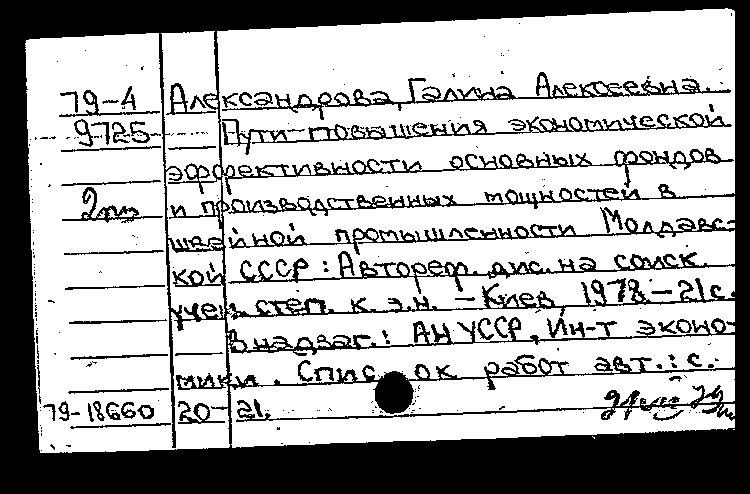 79-4 Александрова, Галина Алексеевна.
9725 Пути повышения экономической
эффективности основных фондов
2 и производственных мощностей в
швейной промышленности Молдавс-
кой СССР: Автореф. дис. на соиск.
учен. степ. к. э.н. – Киев, 1978 – 21 с.
В надзаг.: АН УССР, Ин-т эконо-
мики. Список работ авт.: с.
79-18660 20-21.